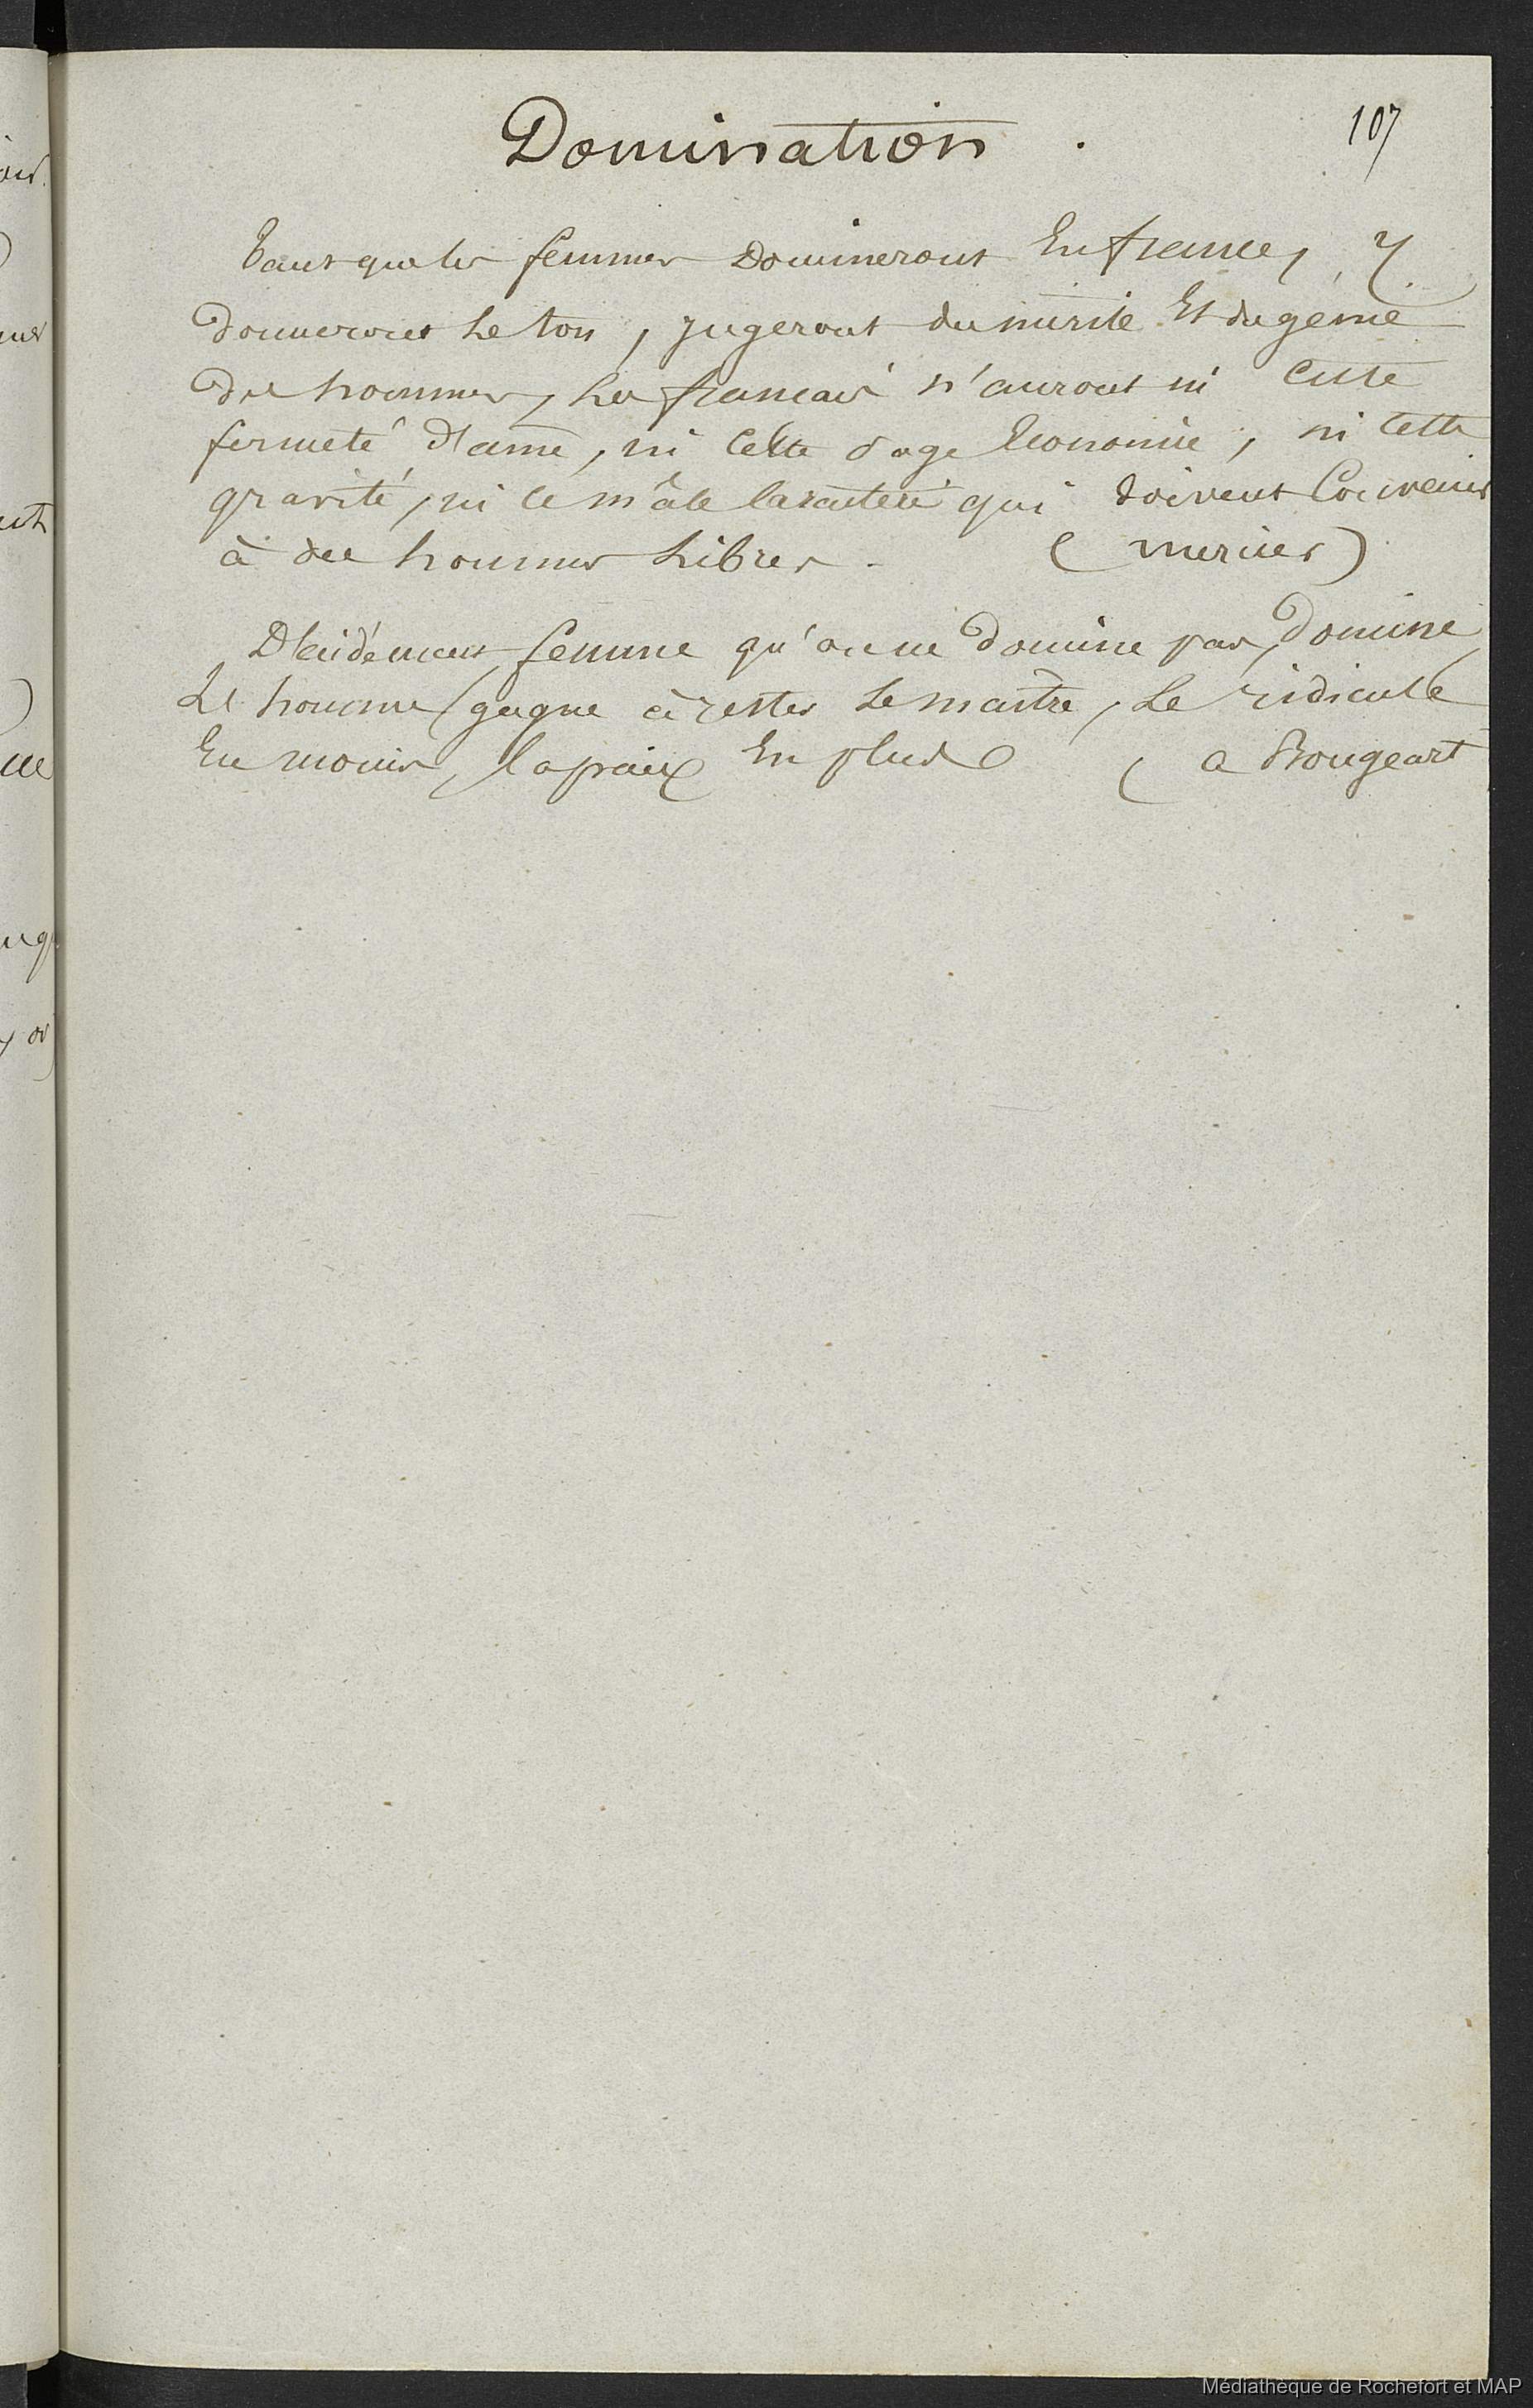 107
Domination .
Tant que les femmes domineront En france, y
donneront Le ton, jugeront du mérite Et du génie
des hommes, Les francais n'auront ni Cette
fermeté d'ame, ni Cette sage Economie, ni Cette
gravité, ni Ce mâle Caractère qui doivent Convenir
à des hommes Libres. (mercier)
Décidément, femme qu'on ne domine pas, domine,
Et homme gagne à rester Le maître, Le ridicule
En moins, La paix En plus (a Rougeart
Médiathèque de Rochefort et MAP